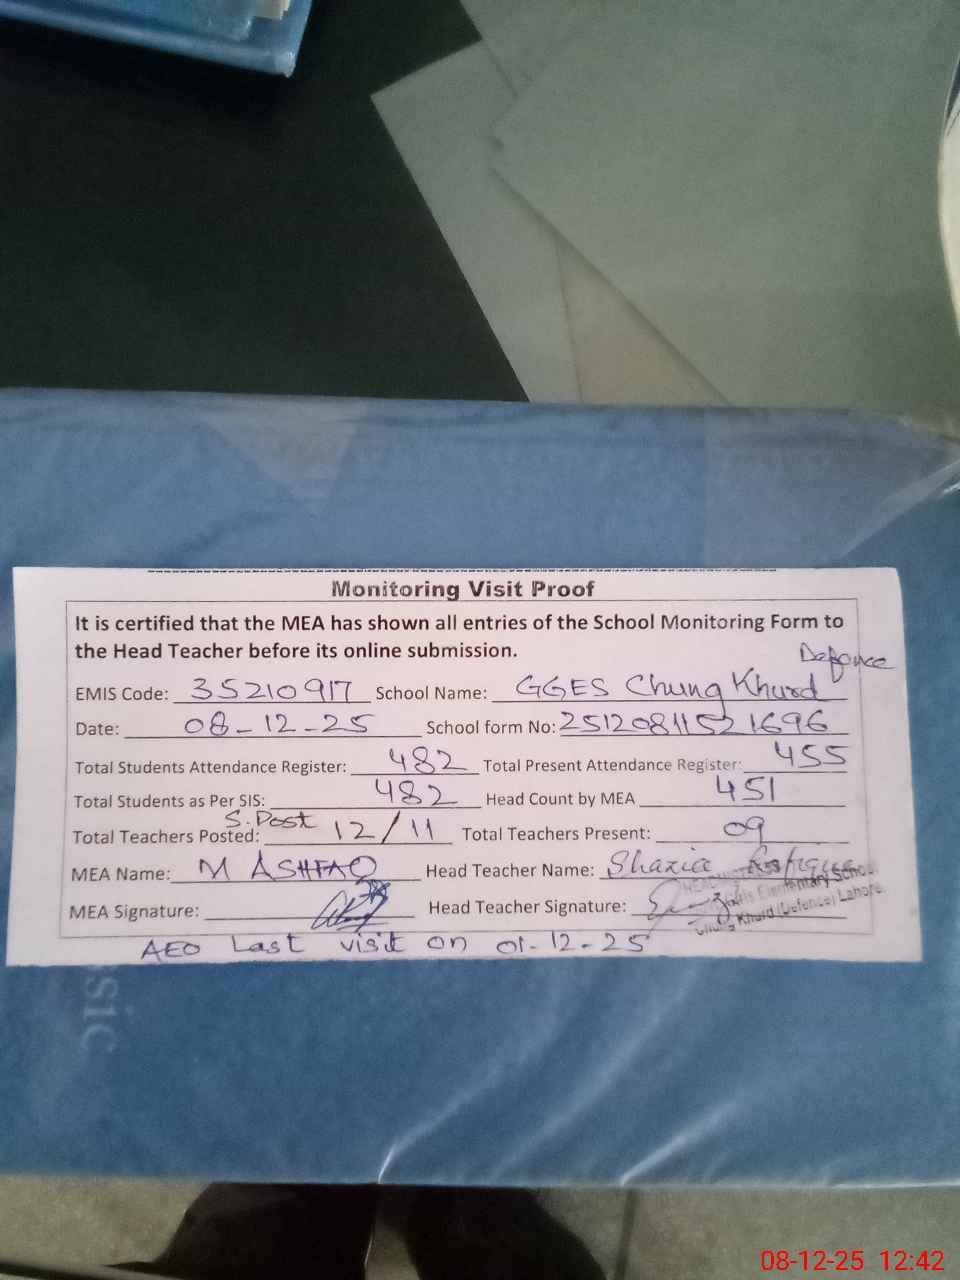 Monitoring Visit Proof
It is certified that the MEA has shown all entries of the School Monitoring Form to
the Head Teacher before its online submission.
Defence
EMIS Code: 35210917 School Name: GGES Chung Khurd
Date: 08-12-25 School form No: 25120811521696
Total Students Attendance Register: 482 Total Present Attendance Register: 455
Total Students as Per SIS: 482 Head Count by MEA 451
S.Post
Total Teachers Posted: 12/11 Total Teachers Present: 09
MEA Name: M ASHFAQ Head Teacher Name: Shazia Rafique
MEA Signature: Head Teacher Signature:
Elementary School
Khurd (Defence) Lahore
AEO Last visit on 01-12-25
sic
08-12-25 12:42